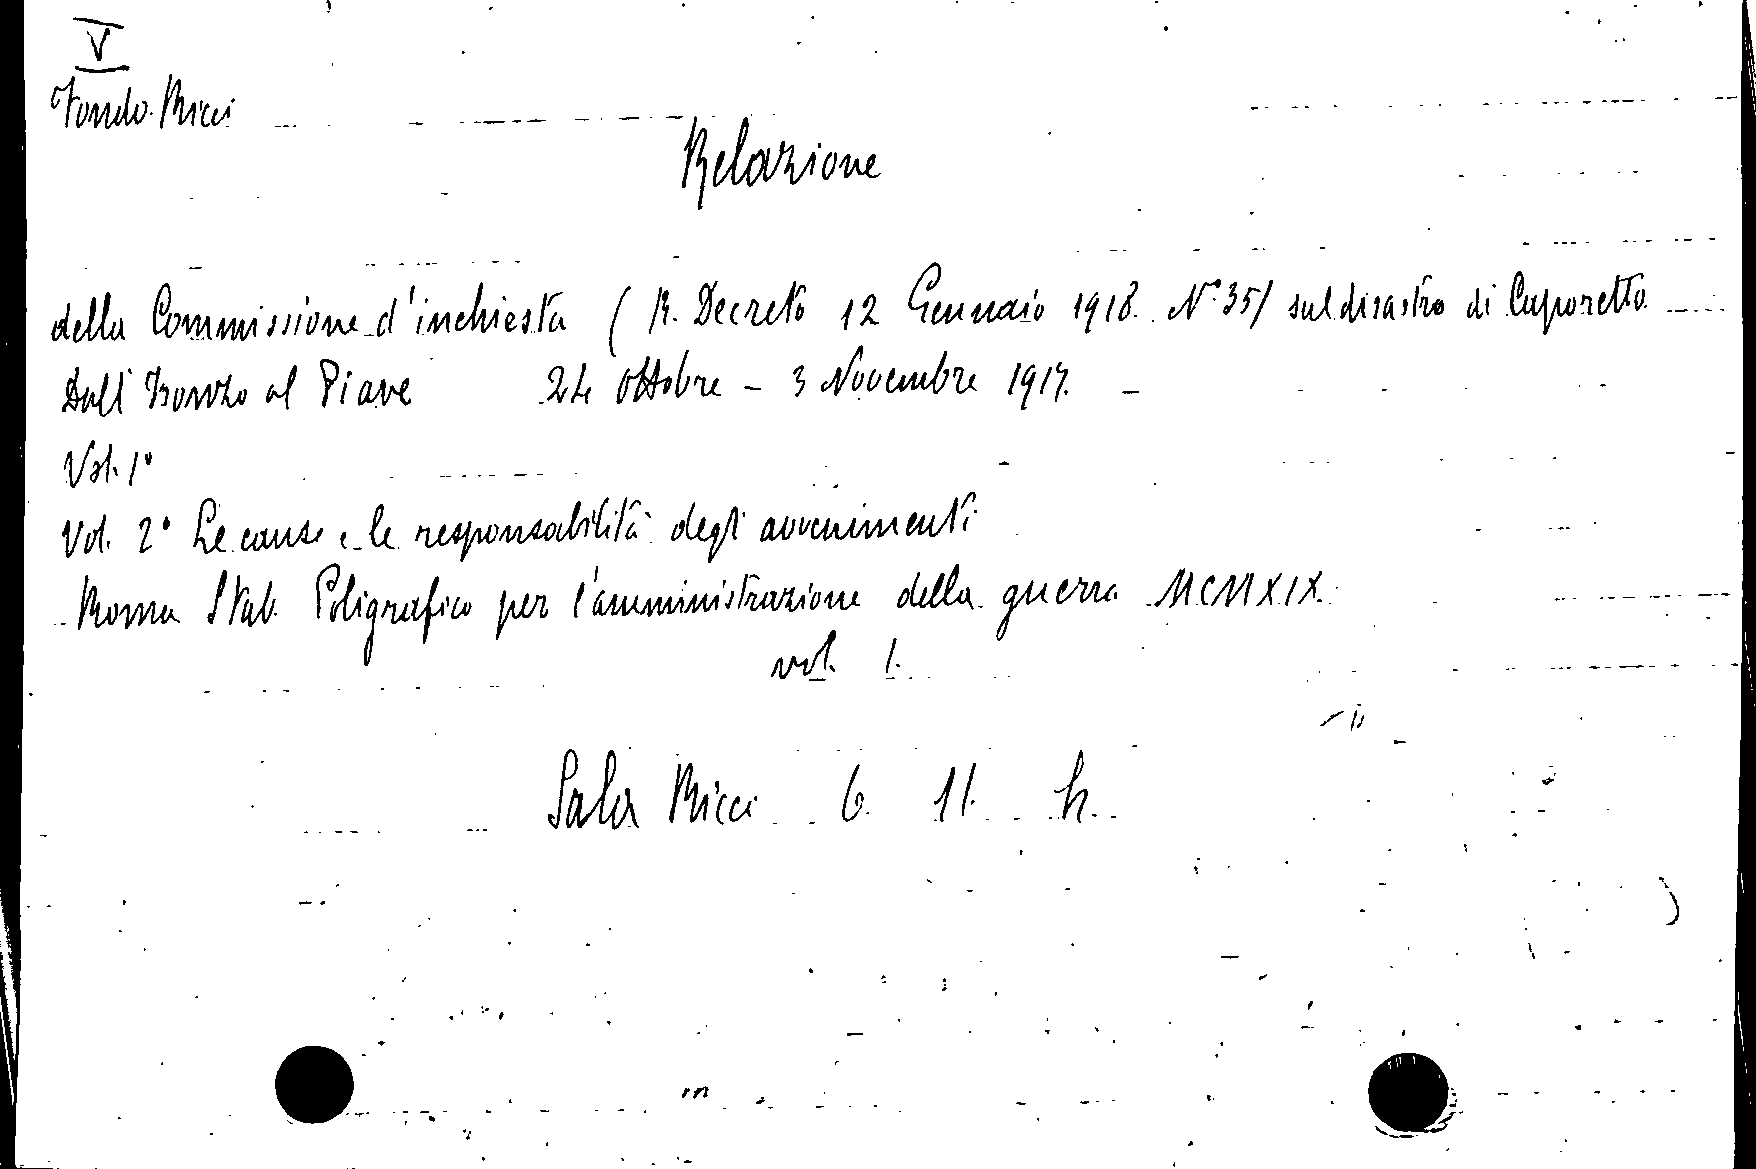 V
Fondo Ricci
Relazione
della Commissione d'inchiesta ( R. Decreto 12 Gennaio 1918. N. 35/ sul disastro di Caporetto
Dall' Isonzo al Piave 24 Ottobre - 3 Novembre 1917. -
Vol. 1°
Vol. 2° Le cause e le responsabilità degli avvenimenti
Roma Stab. Poligrafico per l'amministrazione della guerra MCMXIX.
vol. 1.
Sala Ricci 6. 11. h.